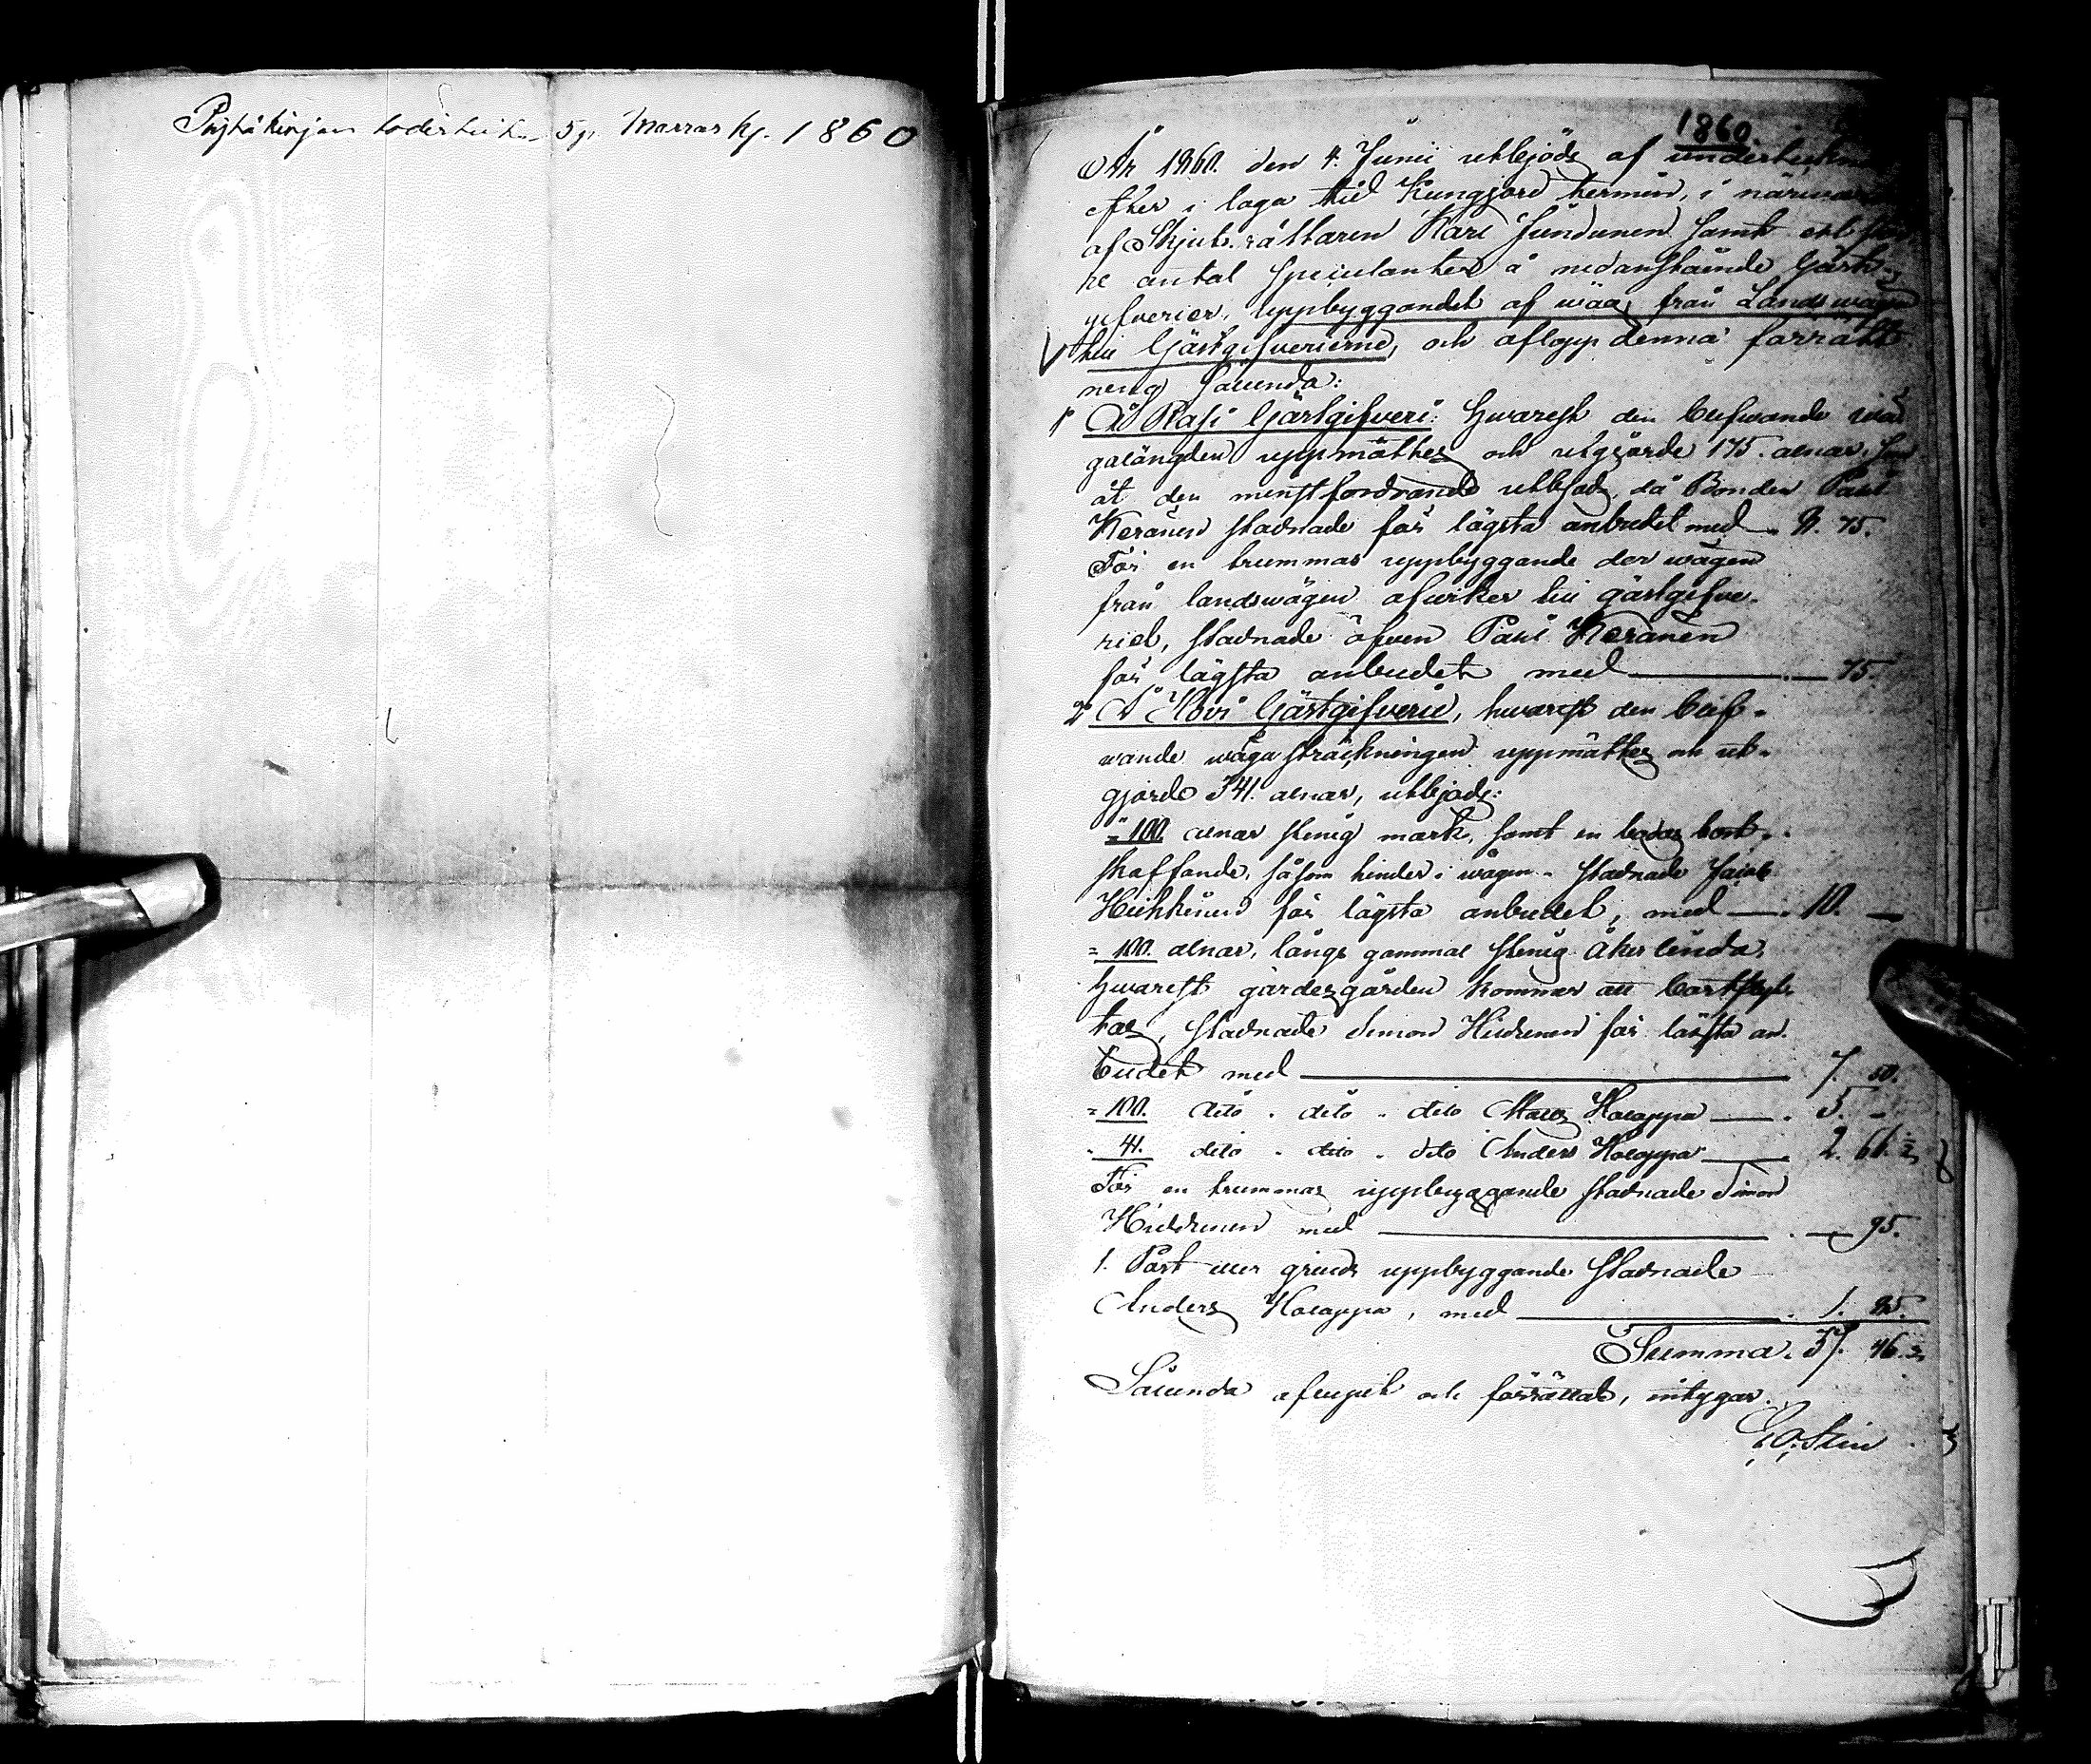 Pöytäkirjan todistuk 5 p. Marrask. 1860
1860
År 1860. den 4. Junii utbjöds af underteckna
efter i laga tid Kungjord termin, i närwaro
af Skjuts rättaren Karl Jundunen samt ett stör
re antal speculanter å nedanstående Gäst-
gifverier, uppbyggandet af wäg från Landswägen
till Gästgifverierne, och aflopp denna förrätt
ning sålunda:
1o À Pasi Gästgifveri: hwarest den blifwande wä
galängden uppmättes och utgjorde 175. alnar. som
åt den minstfordrande utbjöds, då Bonden Paul
Keränen stadnade för lägsta anbudet med 9. 75.
För en trummas uppbyggande der wägen
från landswägen afwiker till gästgifve-
riet, stadnade äfven Paul Keränen
för lägsta anbudet med — 75
2o À Kovi Gästgifveri, hwarest den blif-
wande wäga sträckningen uppmättes och ut-
gjorde 341. alnar, utbjöds:
= 100. alnar stenig mark, samt en bodas bort-
skaffande, såsom hinder i wägen - stadnade Jacob
Heikkinen för lägsta anbudet, med — 10. —
= 100. alnar, längs gammal stenig åker linda,
hwarest gärdesgården kommer att bortflyt-
tas, stadnade Simon Hiidenen för lägsta an-
budet med — 7. 50.
= 100. dito - dito - dito Mats Holappa — 5. -
- 41. dito - dito - dito Anders Holappa — 2. 61.
För en trummas uppbyggande stadnade Simon
Hiidenen med — 95.
1. Port eller grinds uppbyggande stadnade
Anders Holappa, med — 1.
Summa. 37. 46.
Sålunda aflupit och förrättat, intygar.
E. O. Stein